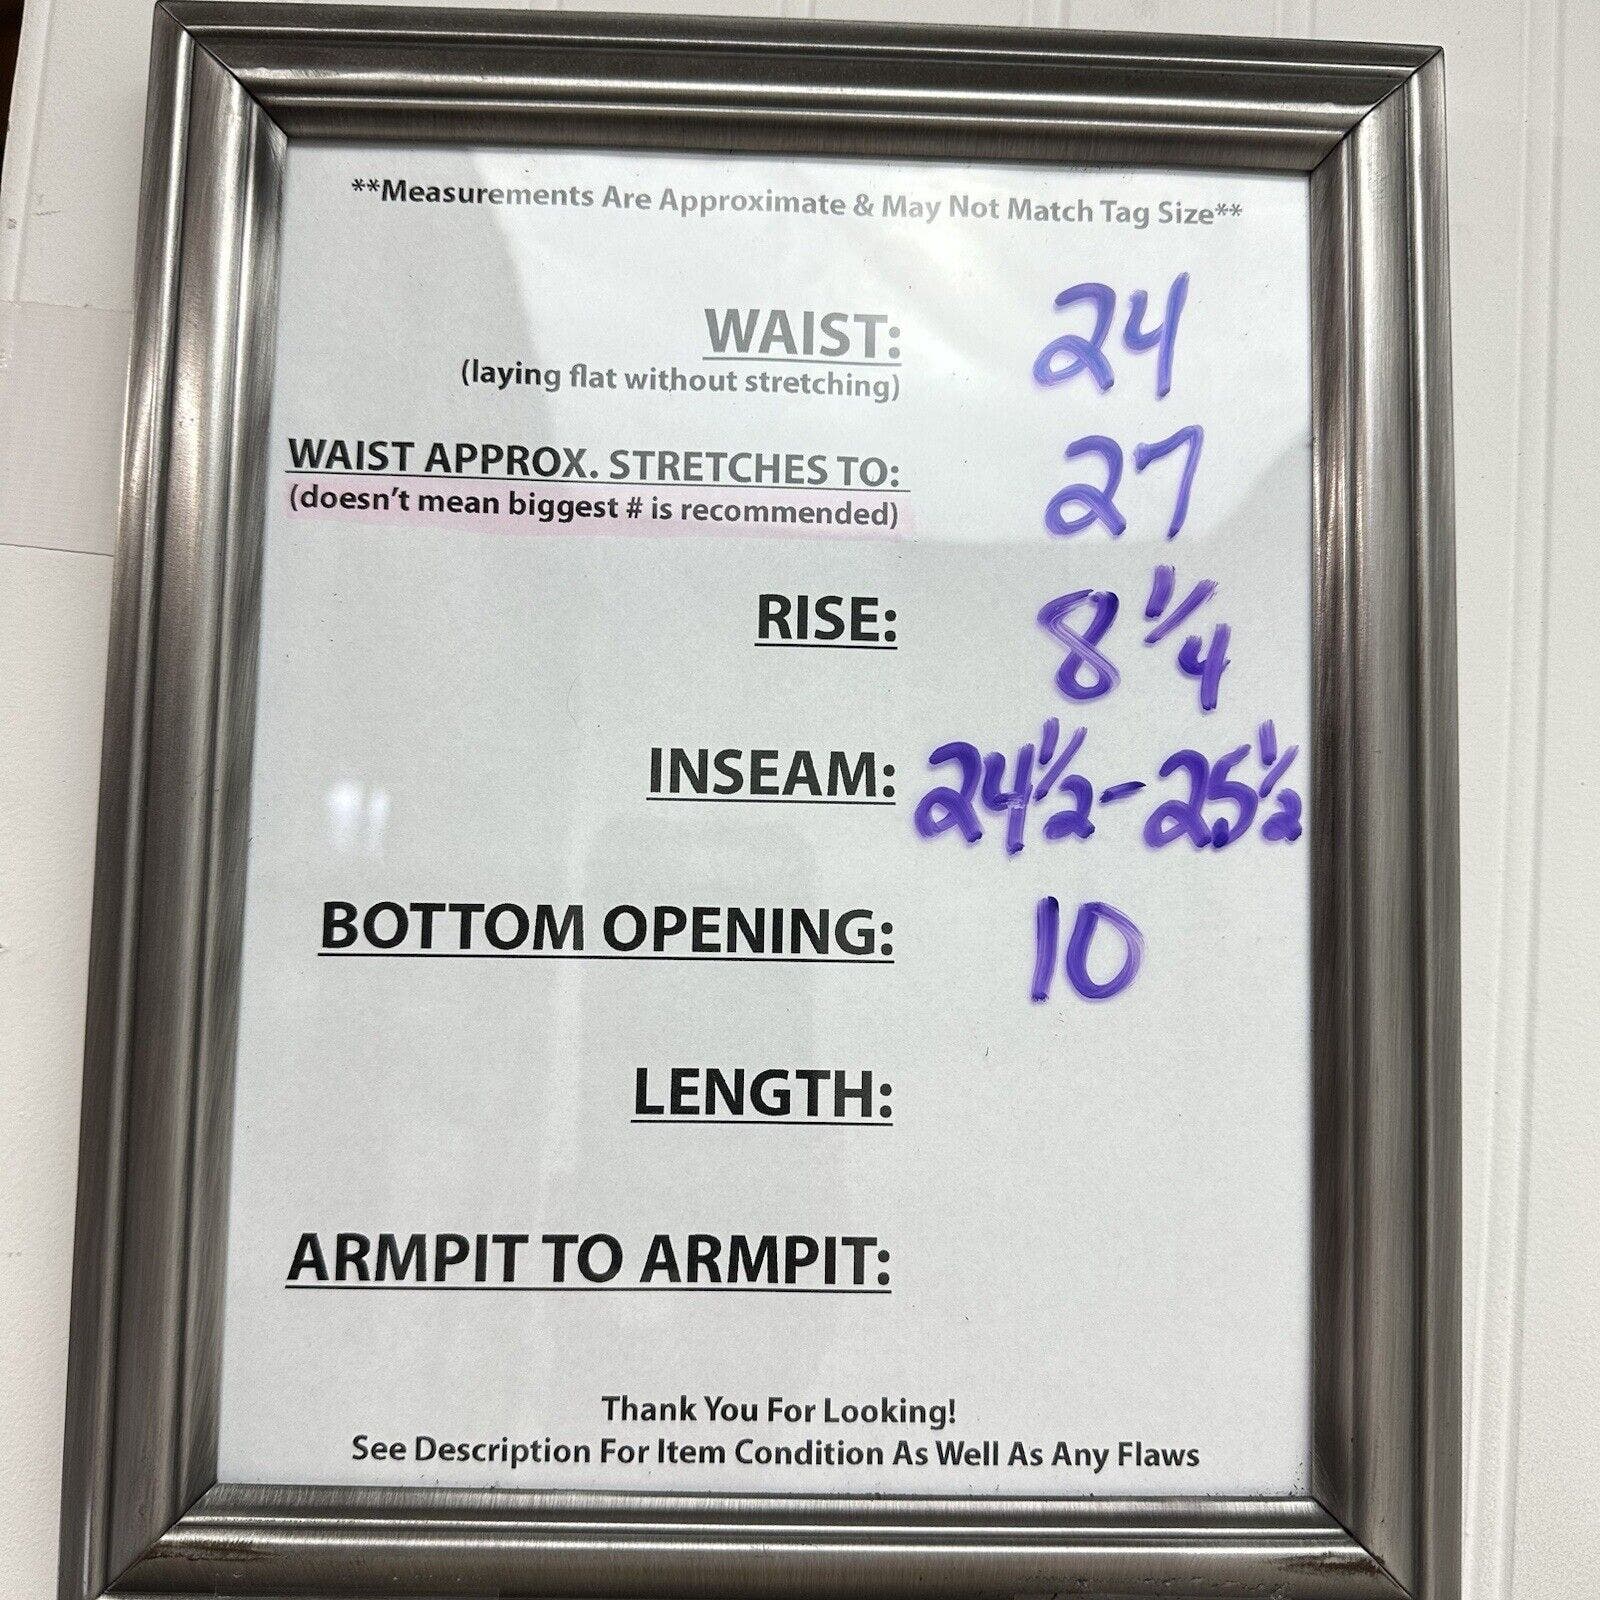 **Measurements Are Approximate & May Not Match Tag Size**
WAIST: 24
(laying flat without stretching)
WAIST APPROX. STRETCHES TO: 27
(doesn't mean biggest # is recommended)
RISE: 8 1/4
INSEAM: 24 1/2 - 25 1/2
BOTTOM OPENING: 10
LENGTH:
ARMPIT TO ARMPIT:
Thank You For Looking!
See Description For Item Condition As Well As Any Flaws